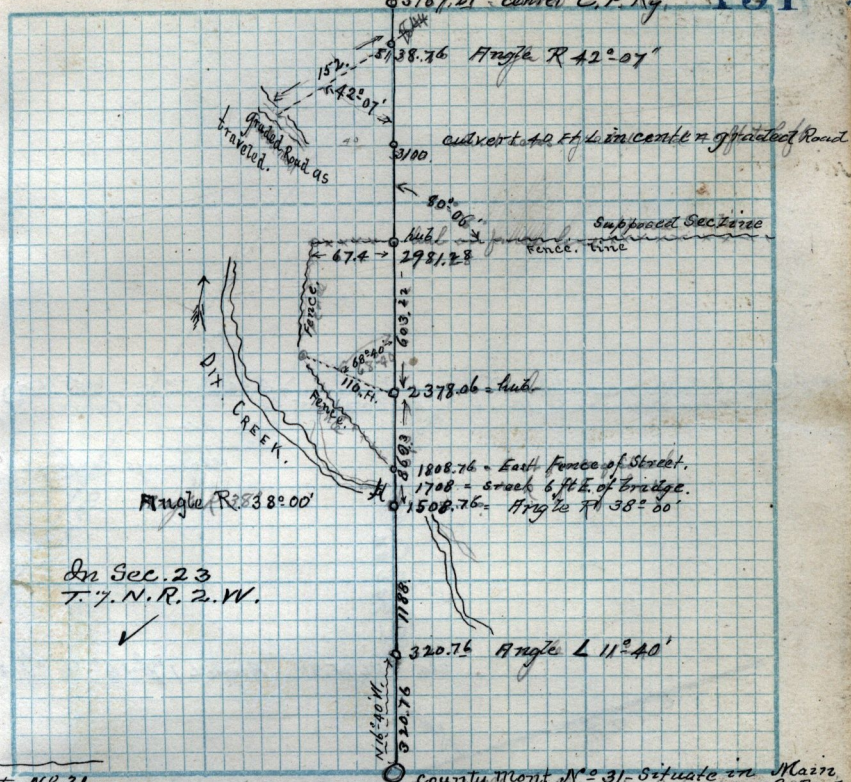 Center C.P. Ry.
5138.76 Angle R 42°-07"
152.
42°07'
graded Road as
traveled.
3100 culvert 40 Ft L in center graded Road
80°06'
hub Supposed Sec Line
67.4 2981.28 Fence. Line
Fence.
603.22
68°40'
110.Ft. 2378.06 = hub.
Fence.
DIX. CREEK.
869.3
1808.76 - East Fence of Street.
1708 = creek 6 ft E. of bridge.
Angle R. 38°00' 1508.76 = Angle R 38°00'
In Sec. 23
T. 7. N. R. 2. W.
1188.
320.76 Angle L 11°-40'
N16°-40'W.
320.76
County Mont. No 31 - Situate in Main